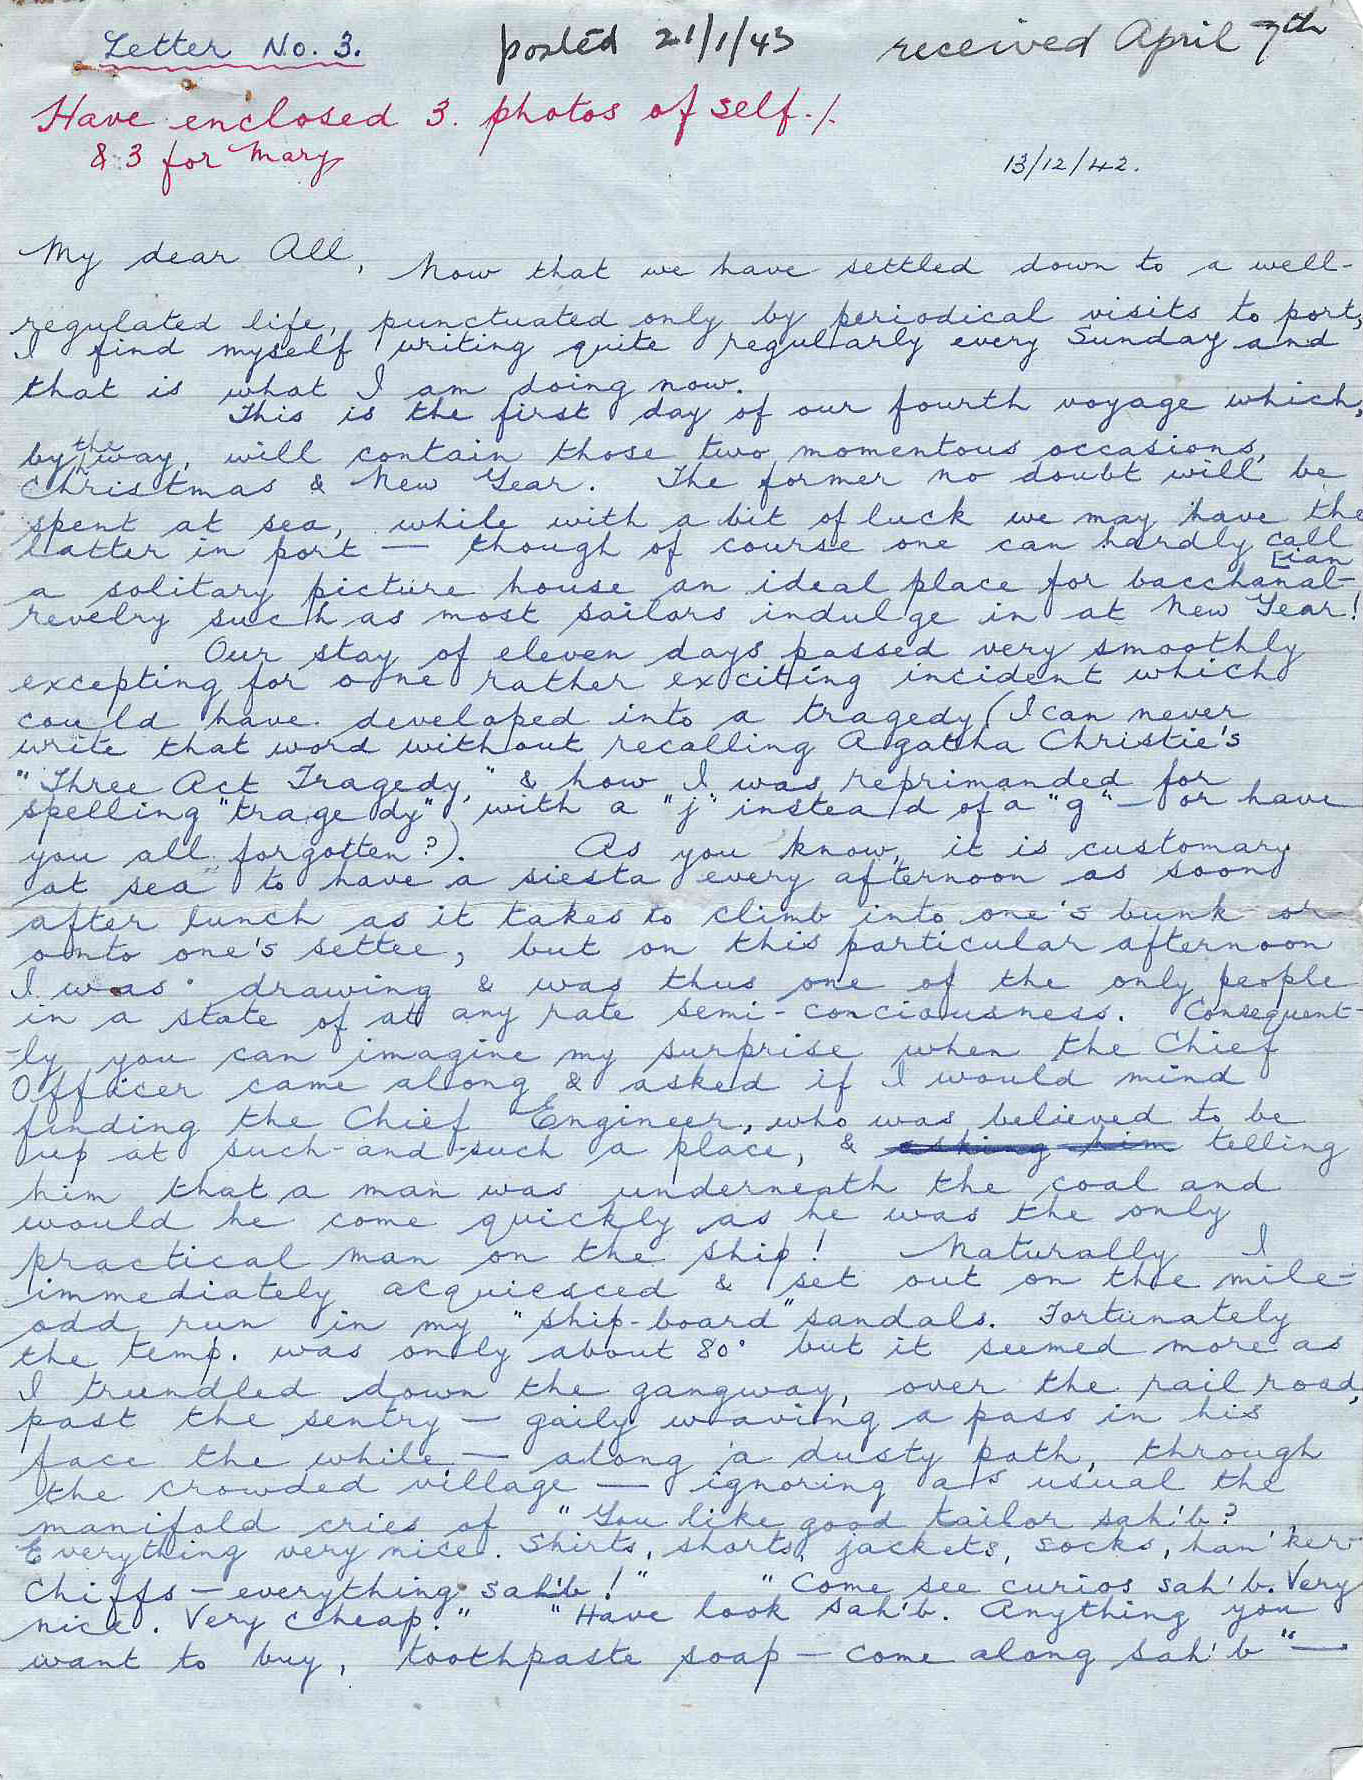 Letter No. 3. posted 21/1/43 received April 7th
Have enclosed 3. photos of self./.
& 3 for Mary
13/12/42.
My dear All, Now that we have settled down to a well-
regulated life, punctuated only by periodical visits to port,
I find myself writing quite regularly every Sunday and
that is what I am doing now.
This is the first day of our fourth voyage which,
by the way, will contain those two momentous occasions,
Christmas & New Year. The former no doubt will be
spent at sea, while with a bit of luck we may have the
latter in port — though of course one can hardly call
a solitary picture house an ideal place for bacchanal-ian
revelry such as most sailors indulge in at New Year!
Our stay of eleven days passed very smoothly
excepting for one rather exciting incident which
could have. developed into a tragedy (I can never
write that word without recalling Agatha Christie's
"Three Act Tragedy," & how I was reprimanded for
spelling "tragedy" with a "j" instead of a "g" — or have
you all forgotten?). As you know, it is customary
at sea to have a siesta every afternoon as soon
after lunch as it takes to climb into one's bunk or
onto one's settee, but on this particular afternoon
I was drawing & was thus one of the only people
in a state of at any rate semi-conciousness. Consequent-
-ly you can imagine my surprise when the Chief
Officer came along & asked if I would mind
finding the Chief Engineer, who was believed to be
up at such-and-such a place, & asking him telling
him that a man was underneath the coal and
would he come quickly as he was the only
practical man on the ship! Naturally I
immediately acquiesced & set out on the mile-
odd run in my "ship-board" sandals. Fortunately
the temp. was only about 80° but it seemed more as
I trundled down the gangway, over the rail road,
past the sentry — gaily waving a pass in his
face the while — along a dusty path, through
the crowded village — ignoring as usual the
manifold cries of "You like good tailor sah'b?
Everything very nice. Shirts, shorts, jackets, socks, han'ker-
chiffs — everything sah'b!" "Come see curios sah'b. Very
nice. Very cheap." "Have look sah'b. Anything you
want to buy, toothpaste soap — come along sah'b" —